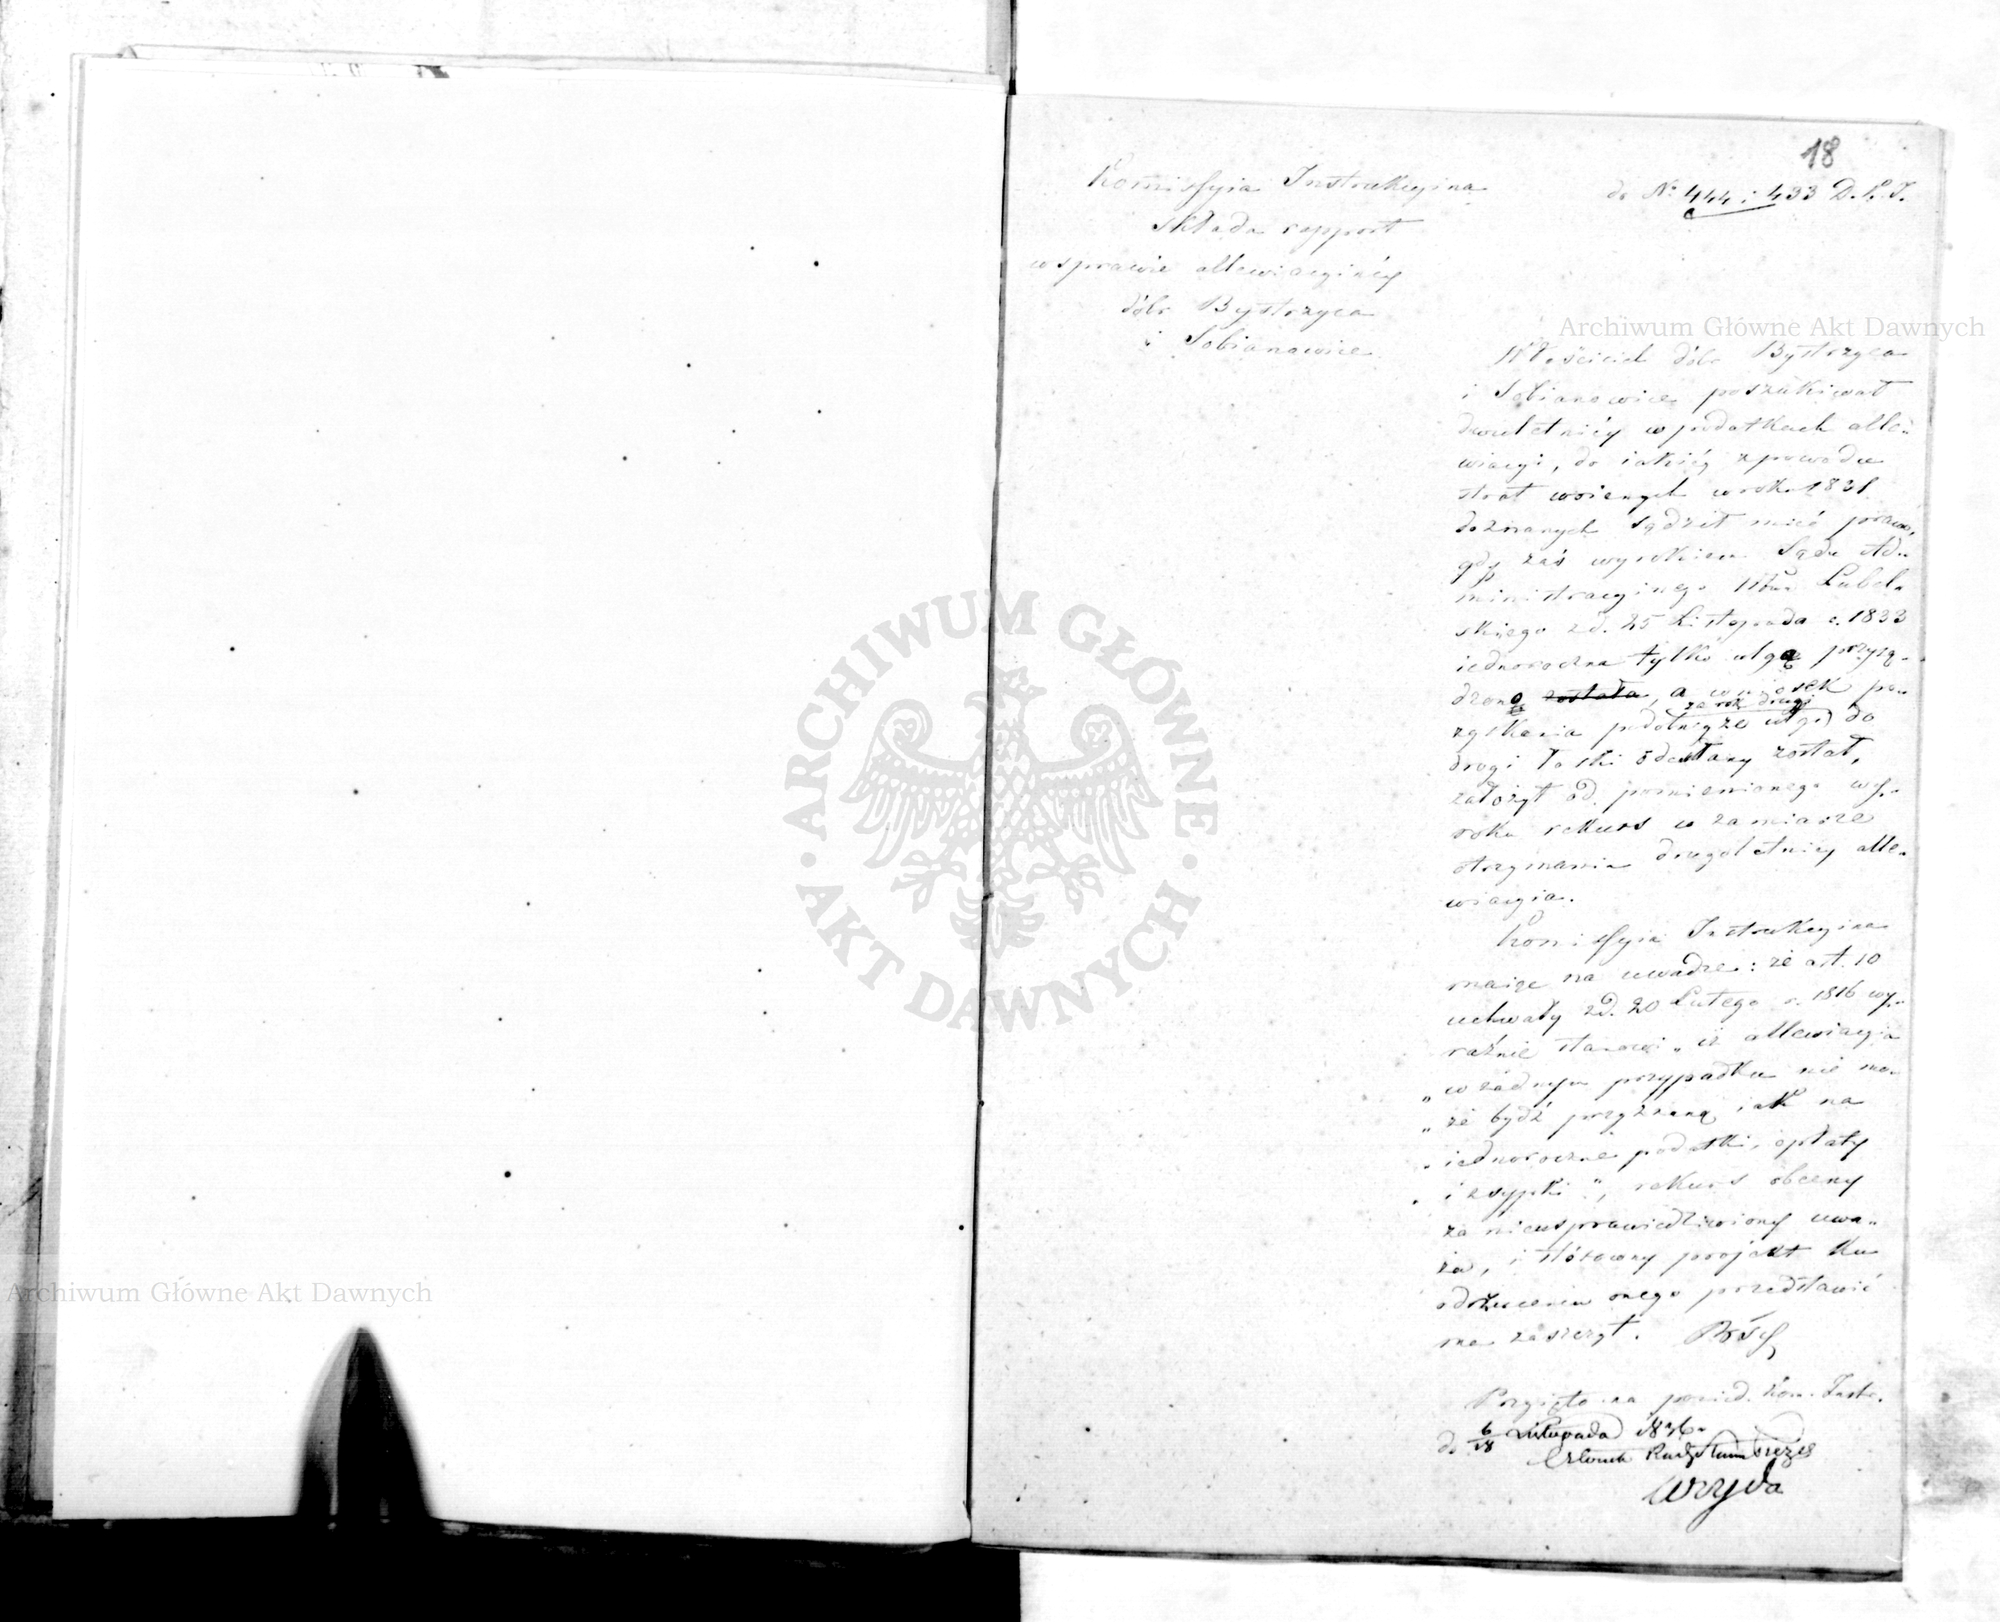 18
do Nr 444 i 433 D.K.I.
Komissyia Instrukcyina
składa rapport
w sprawie allewiacyinéy
dóbr Bystrzyca
i Sobianowice
Właściciel dóbr Bystrzyca
i Sobianowice poszukiwał
dwuletniéy w podatkach alle-
wiacyi, do iakiéy z powodu
strat woiennych w roku 1831
doznanych sądził mieć prawo,
gdy zaś wyrokiem Sądu Ad-
ministracyinego Wdwa Lubel-
skiego z d. 25 Listopada r. 1833
iednoroczna tylko ulgę przysą-
dzono została, a wniosek po-
za rok drugi
zyskania podobnéyże ulgi do
drogi łaski odesłany został,
założył od pomienionego wy-
roku rekurs w zamiarze
otrzymania drugoletniéy alle-
wiacyia.
Komissyia Instrukcyina
maiąc na uwadze: że art. 10
uchwały z d. 20 Lutego r. 1816 wy-
raźnie stanowi „iż allewiacyia
„w żadnym przypadku nie mo-
„że bydź przyznaną iak na
„iednoroczne podatki, opłaty
„i zsypki", rekurs obecny
za nieusprawiedliwiony uwa-
ża, i stósowny projekt ku
odrzuceniu onego przedstawić
ma zaszczyt.
Przyięto na posied. Kom. Instr.
d. 6/18 Listopada 1836 r.
Członek Rady Stanu Prezes
Wyczechowski
Archiwum Główne Akt Dawnych
Archiwum Główne Akt Dawnych
ARCHIWUM GŁÓWNE
· AKT DAWNYCH ·